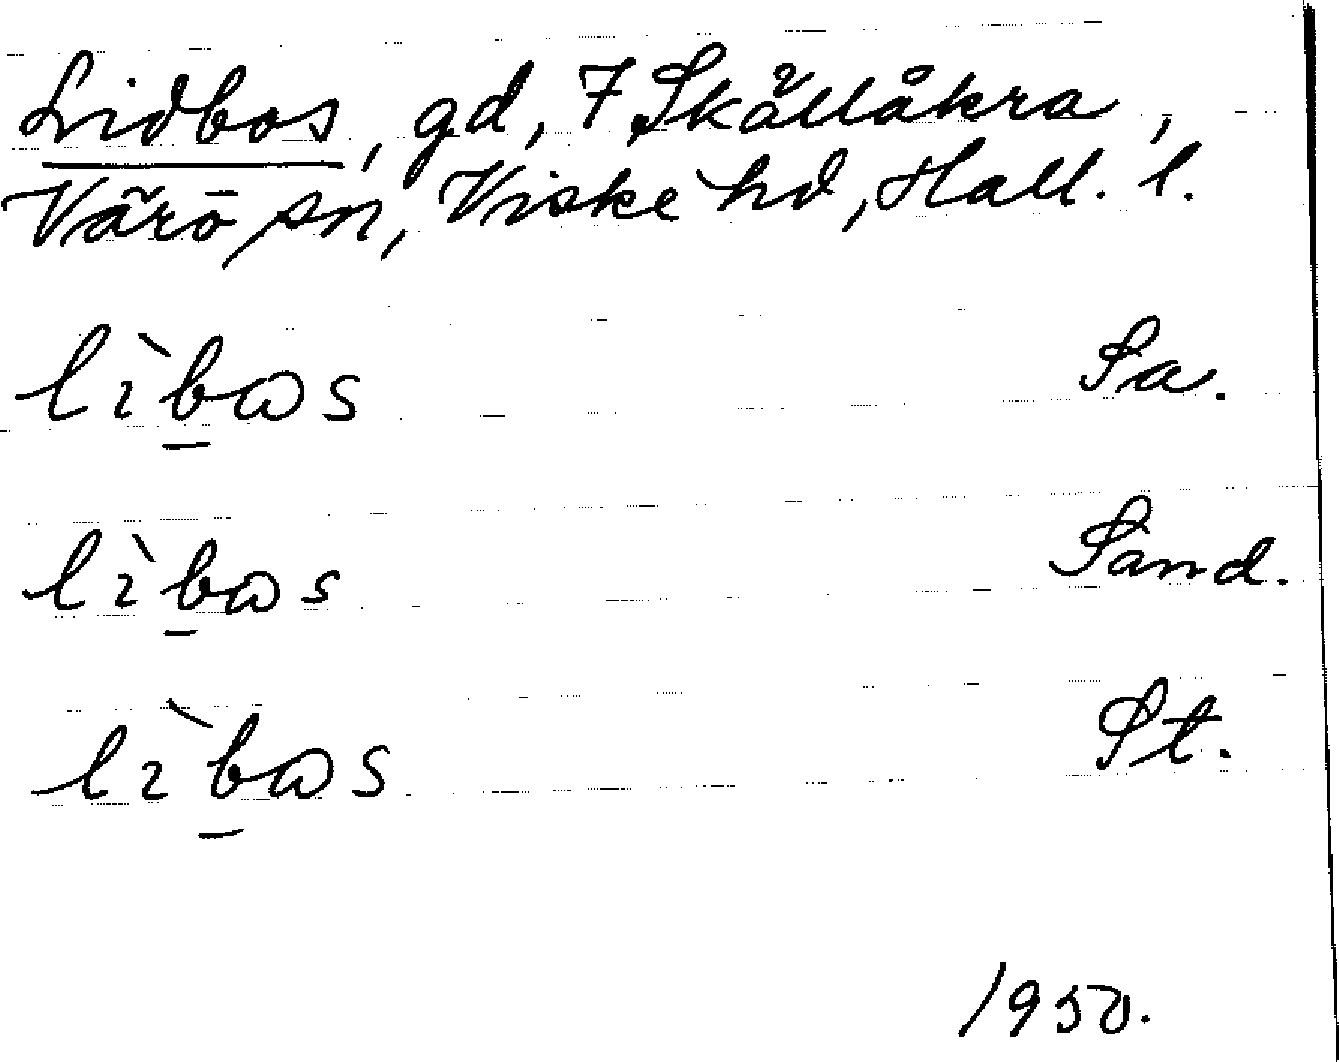 Lidbos, gd, 7 Skällåkra,
Värö sn, Viske hd, Hall. l.
lìb̲ɷs Sa.
lìb̲ɷs Sand.
lìb̲ɷs St.
1950.